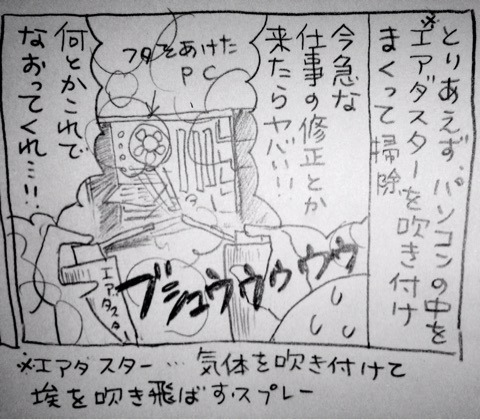 とりあえず、パソコンの中を
※エアダスターを吹き付け
まくって掃除
今急な
仕事の修正とか
来たらヤバい!!
フタをあけた
PC
何とかこれで
なおってくれ…!!
エアダスター
ブシュウウゥゥウウ
※エアダスター…気体を吹き付けて
埃を吹き飛ばす・スプレー